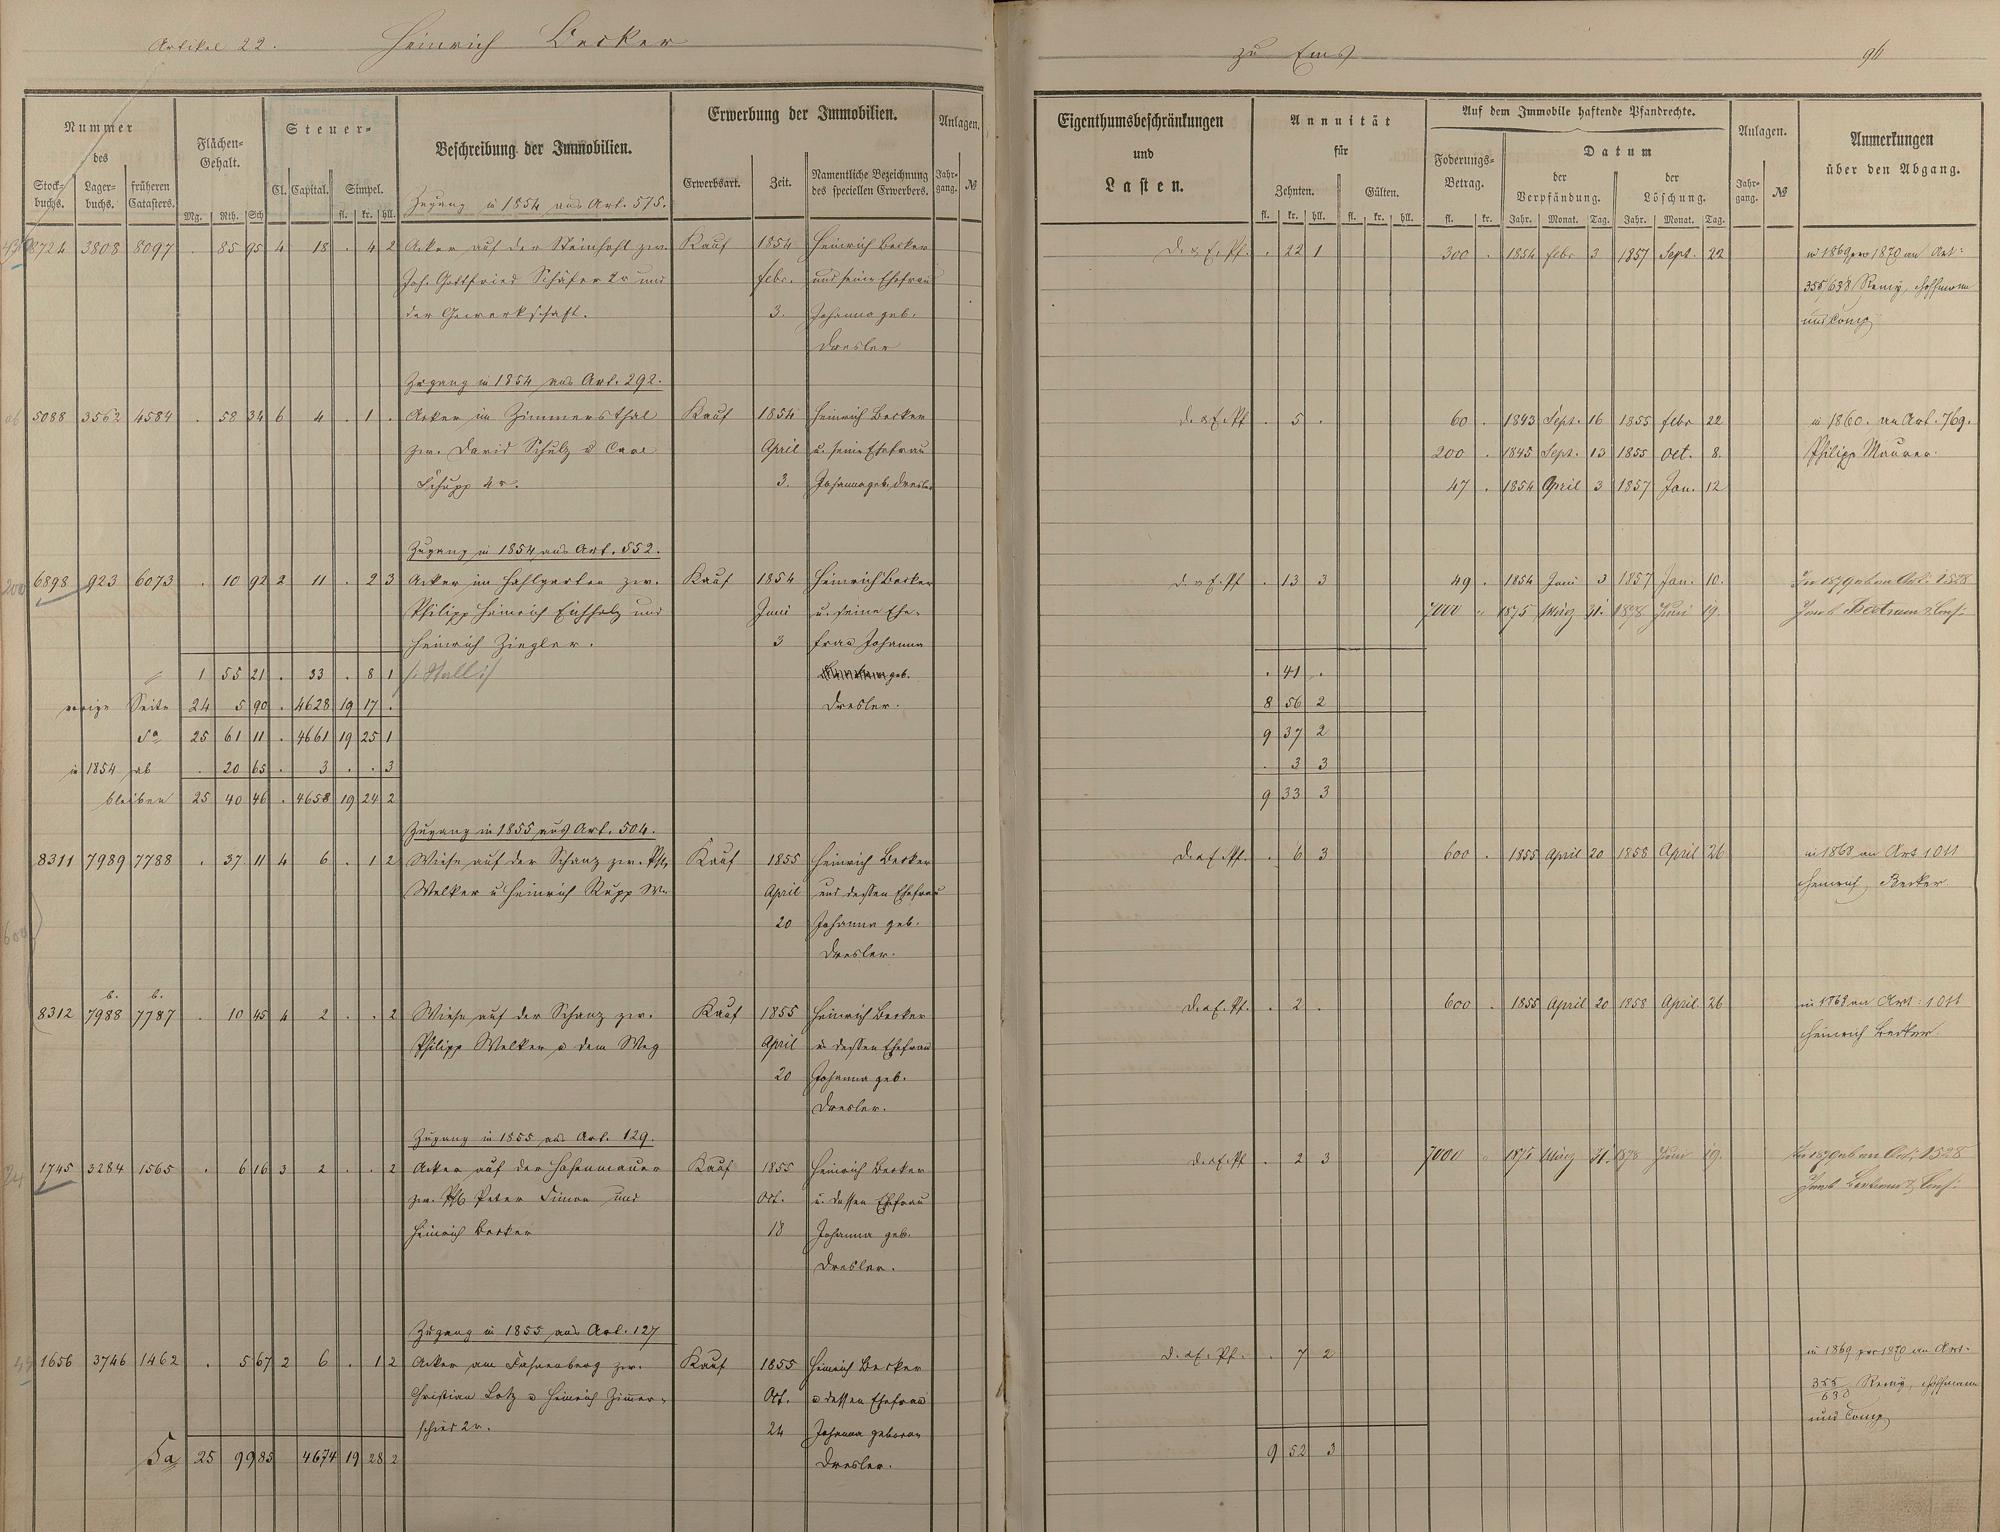 Artikel 22. Heinrich Becker
zu Ems
Nummer
des
Stockbuchs.
Lagerbuchs.
früheren Catasters.
Flächen-Gehalt.
Mg. Rth. Sch
Steuer-
Cl. Capital. Simpel.
fl. kr. hll.
Beschreibung der Immobilien.
Erwerbung der Immobilien.
Erwerbsart. Zeit. Namentliche Bezeichnung des speciellen Erwerbers.
Anlagen.
Jahrgang. №
Eigenthumsbeschränkungen
und
Lasten.
Annuität
für
Zehnten. Gülten.
fl. kr. hll. fl. kr. hll.
Auf dem Immobile haftende Pfandrechte.
Foderungs-Betrag.
fl. kr.
Datum
der Verpfändung. der Löschung.
Jahr. Monat. Tag. Jahr. Monat. Tag.
Anlagen.
Jahrgang. №
Anmerkungen
über den Abgang.
Zugang in 1854 aus Art. 575.
8724 3808 8097 . 85 95 4 18 . 4 2 Acker auf der Steinhohl zw. Kauf 1854 Heinrich Becker D. & E. Pf. . 22 1 300 . 1854 febr 3 1857 Sept. 22 in 1869 pro 1870 an Art:
Joh. Gottfried Schäfer 2r und febr. und seine Ehefrau 355/638 Remy, Hoffmann
der Gewerkschaft. 3. Johanna geb. und Comp
Dresler
Zugang in 1854 aus Art. 292.
5088 3562 4584 . 58 34 6 4 . 1 . Acker im Zimmersthal Kauf 1854 Heinrich Becker D. & E. Pf . 5 . 60 . 1843 Sept. 16 1855 febr 22 in 1860. an Art. 769.
zw. David Schulz u Carl April u. seine Ehefrau 200 . 1845 Sept. 13 1855 Oct. 8. Philipp Maurer.
Schupp 4r. 3. Johanna geb. Dresler 47 . 1854 April 3 1857 Jan. 12
Zugang in 1854 aus Art. 552.
6898 923 6073 . 10 92 2 11 . 2 3 Acker im Hohlgarten zw. Kauf 1854 Heinrich Becker D. & E. Pf . 13 3 49 . 1854 Juni 3 1857 Jan. 10. In 1879 ab an Art: 1528
Philipp Heinrich Eichholz und Juni u. seine Ehe- 7000 " 1875 März 31. 1878 Juni 19.
Heinrich Ziegler. 3 frau Johanna
1 55 21 . 33 . 8 1 /: Stall :/ geb. . 41 .
vorige Seite 24 5 90 . 4628 19 17 . Dresler. 8 56 2
Sa 25 61 11 . 4661 19 25 1 9 37 2
in 1854 ab . 20 65 . 3 . . 3 . 3 3
bleiben 25 40 46 . 4658 19 24 2 9 33 3
Zugang in 1855 aus Art. 504.
8311 7989 7788 . 37 11 4 6 . 1 2 Wiese auf der Schanz zw. Phil. Kauf 1855 Heinrich Becker D. & E. Pf. . 6 3 600 . 1855 April 20 1858 April 26 in 1868 an Art 1011
Welker u Heinrich Rupp Wr. April und dessen Ehefrau Heinrich Becker.
20 Johanna geb.
Dresler.
b. b.
8312 7988 7787 . 10 45 4 2 . . 2 Wiese auf der Schanz zw. Kauf 1855 Heinrich Becker D. & E. Pf. . 2 . 600 . 1855 April 20 1858 April 26 in 1868 an Art: 1011
Philipp Welker u dem Weg April u dessen Ehefrau Heinrich Becker.
20 Johanna geb.
Dresler.
Zugang in 1855 aus Art. 129.
1745 3284 1565 . 6 16 3 2 . . 2 Acker auf der Hohenmauer Kauf 1855 Heinrich Becker D. & E. Pf . 2 3 7000 " 1875 März 31. 1878 Juni 19. In 1879 ab an Art: 1528
zw. Phil Peter Simon und Oct. u. dessen Ehefrau
Heinrich Becker 18 Johanna geb.
Dresler.
Zugang in 1855 aus Art. 127
1656 3746 1462 . 5 67 2 6 . 1 2 Acker am Fahnenberg zw. Kauf 1855 Heinrich Becker D. & E. Pf. . 7 2 in 1869 pro 1870 an Art.
Christian Lotz u Heinrich Zimmer- Oct. u dessen Ehefrau 355/638 Remy, Hoffmann
schied 2r. 24 Johanna geboren und Comp
Sa 25 99 85 4674 19 28 2 Dresler. 9 52 3